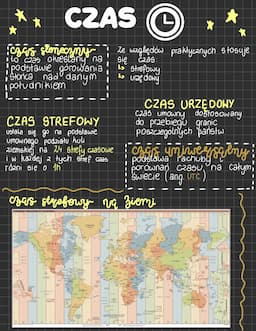 CZAS
czas słoneczny
to czas określany na
podstawie górowania
słońca nad danym
południkiem
Ze względów praktycznych stosuje
się czas
strefowy
urzędowy
CZAS URZĘDOWY
czas umowny dostosowany
do przebiegu granic
poszczególnych państw
CZAS STREFOWY
ustala się go na podstawie
umownego podziału kuli
ziemskiej na 24 strefy czasowe
i w każdej z tych stref czas
różni się o 1h
czas uniwersalny
podstawa rachuby i
porównań czasu na całym
świecie (ang. UTC)
czas strefowy na Ziemi